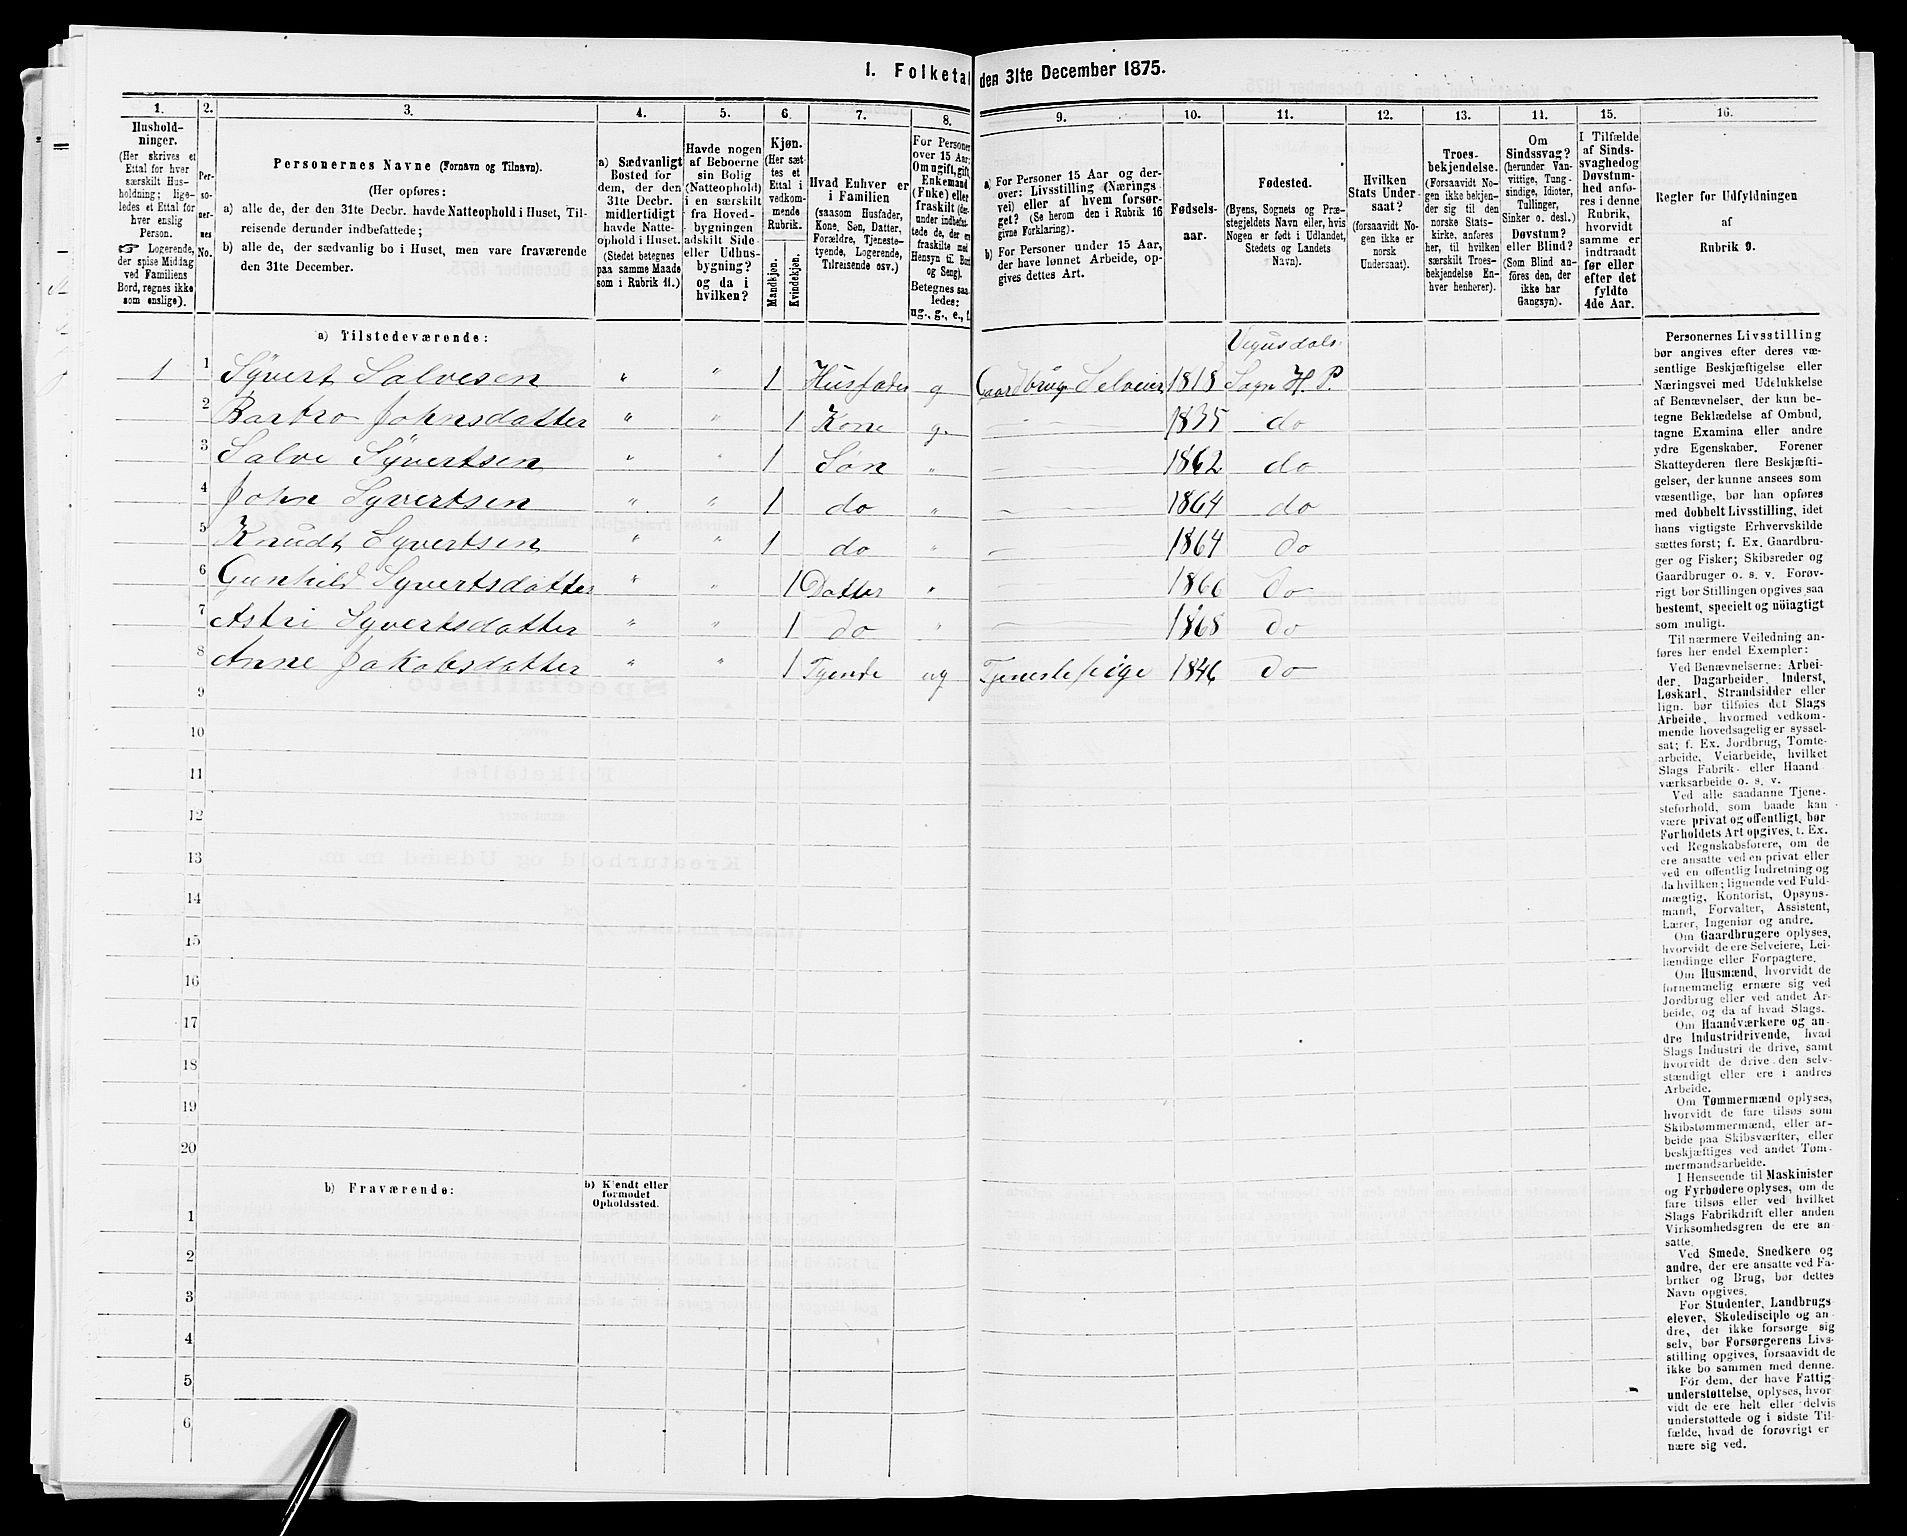 1. Folketal den 31te December 1875.
1. 2. 3. 4. 5. 6. 7. 8. 9. 10. 11. 12. 13. 14. 15. 16.
Hushold-
ninger.
(Her skrives et
Ettal for hver
særskilt Hus-
holdning; lige-
ledes et Ettal for
hver enslig
Person.
Logerende,
der spise Middag
ved Familiens
Bord, regnes ikke
som enslige).
Per-
so-
ner-
nes
No.
Personernes Navne (Fornavn og Tilnavn).
(Her opføres:
a) alle de, der den 31te Decbr. havde Natteophold i Huset, Til-
reisende derunder indbefattede;
b) alle de, der sædvanlig bo i Huset, men vare fraværende
den 31te December.
a) Sædvanligt
Bosted for
dem, der den
31te Decbr.
midlertidigt
havde Natte-
ophold i Huset.
(Stedet betegnes
paa samme Maade
som i Rubrik 11.)
Havde nogen
af Beboerne
sin Bolig
(Natteophold)
i en særskilt
fra Hoved-
bygningen
adskilt Side-
eller Udhus-
bygning?
og da i
hvilken?
Kjøn.
(Her sæt-
tes et
Ettal i
vedkom-
mende
Rubrik.
Mandkjøn.
Kvindekjøn.
Hvad Enhver er
i Familien
(saasom Husfader,
Kone, Søn, Datter,
Forældre, Tjeneste-
tyende, Logerende,
Tilreisende osv.)
For Personer
over 15 Aar:
Om ugift, gift,
Enkemand
(Enke) eller
fraskilt (der-
under indbefat-
tede de, der ere
fraskilte med
Hensyn til Bord
og Seng).
Betegnes saa-
ledes:
ug., g., e., f.
a) For Personer 15 Aar og der-
over: Livsstilling (Nærings
vei) eller af hvem forsør-
get? (Se herom den i Rubrik 16
givne Forklaring).
b) For Personer under 15 Aar,
der have lønnet Arbeide, op-
gives dettes Art.
Fødsels-
aar.
Fødested.
(Byens, Sognets og Præ-
stegjeldets Navn eller, hvis
Nogen er født i Udlandet,
Stedets og Landets
Navn).
Hvilken
Stats Under-
saat?
(forsaavidt No-
gen ikke er
norsk
Undersaat).
Troes-
bekjendelse.
(Forsaavidt No-
gen ikke bekjen-
der sig til den
norske Stats-
kirke, anføres
her, til hvilken
særskilt Troes-
bekjendelse En-
hver henhører).
Om
Sindssvag?
(herunder Van-
vittige, Tung-
sindige, Idioter,
Tullinger,
Sinker o. desl.)
Døvstum?
eller Blind?
(Som Blind an-
føres den, der
ikke har
Gangsyn).
I Tilfælde
af Sinds-
svaghed og
Døvstum-
hed anfø-
res i denne
Rubrik,
hvorvidt
samme er
indtraadt
før eller
efter det
fyldte
4de Aar.
Regler for Udfyldningen
af
Rubrik 9.
a) Tilstedeværende:
Vegusdals
1 1 Syvert Salvesen " " 1 Husfader g Gaardbrug Selveier 1818 Sogn H. P.
2 Barbro Johnsdatter " " 1 Kone g. — 1835 do
3 Salve Syvertsen " " 1 Søn " — 1862 do
4 John Syvertsen " " 1 do " — 1864 do
5 Knudt Syvertsen " " 1 do " — 1864 do
6 Gunhild Syvertsdatter " " 1 Datter " — 1866 do
7 Astri Syvertsdatter " " 1 do " — 1868 do
8 Anne Jakobsdatter " " 1 Tyende ug Tjenestepige 1846 do
9
10
11
12
13
14
15
16
17
18
19
20
b) Fraværende:
b) Kjendt eller
formodet
Opholdssted.
1
2
3
4
5
6
Personernes Livsstilling
bør angives efter deres væ-
sentlige Beskjæftigelse eller
Næringsvei med Udelukkelse
af Benævnelser, der kun be-
tegne Beklædelse af Ombud,
tagne Examina eller andre
ydre Egenskaber. Forener
Skatteyderen flere Beskjæfti-
gelser, der kunne ansees som
væsentlige, bør han opføres
med dobbelt Livsstilling, idet
hans vigtigste Erhvervskilde
sættes først; f. Ex. Gaardbru-
ger og Fisker; Skibsreder og
Gaardbruger o. s. v. Forøv-
rigt bør Stillingen opgives saa
bestemt, specielt og nöiagtigt
som muligt.
Til nærmere Veiledning an-
føres her endel Exempler:
Ved Benævnelserne: Arbei-
der, Dagarbeider, Inderst,
Løskarl, Strandsidder eller
lign. bør tilføies det Slags
Arbeide, hvormed vedkom-
mende hovedsagelig er syssel-
sat; f. Ex. Jordbrug, Tomte-
arbeide, Veiarbeide, hvilket
Slags Fabrik- eller Haand
værksarbeide o. s. v.
Ved alle saadanne Tjene-
steforhold, som baade kan
være privat og offentligt, bør
Forholdets Art opgives, t. Ex.
ved Regnskabsførere, om de
ere ansatte ved en privat eller
ved en offentlig Indretning og
da hvilken; lignende ved Fuld-
mægtig, Kontorist, Opsyns-
mand, Forvalter, Assistent,
Lærer, Ingeniør og andre.
Om Gaardbrugere oplyses,
hvorvidt de ere Selveiere, Lei-
lændinge eller Forpagtere.
Om Husmænd, hvorvidt de
fornemmelig ernære sig ved
Jordbrug eller ved andet Ar-
beide, og da af hvad Slags.
Om Haandværkere og an-
dre Industridrivende, hvad
Slags Industri de drive, samt
hvorvidt de drive den selv-
stændigt eller ere i andres
Arbeide.
Om Tømmermænd oplyses,
hvorvidt de fare tilsøs som
Skibstømmermænd, eller ar-
beide paa Skibsværfter, eller
beskjæftiges ved andet Tøm-
mermandsarbeide.
I Henseende til Maskinister
og Fyrbødere oplyses, om de
fare tilsøs eller ved hvilket
Slags Fabrikdrift eller anden
Virksomhedsgren de ere an-
satte.
Ved Smede, Snedkere og
andre, der ere ansatte ved Fa-
briker og Brug, bør dettes
Navn opgives.
For Studenter, Landbrugs
elever, Skoledisciple og an-
dre, der ikke forsørge sig
selv, bør Forsørgerens Livs-
stilling opgives, forsaavidt de
ikke bo sammen med denne.
For dem, der have Fattig
understøttelse, oplyses, hvor-
vidt de ere helt eller delvis
understøttede og i sidste Til-
fælde, hvad de forøvrigt er
nære sig ved.